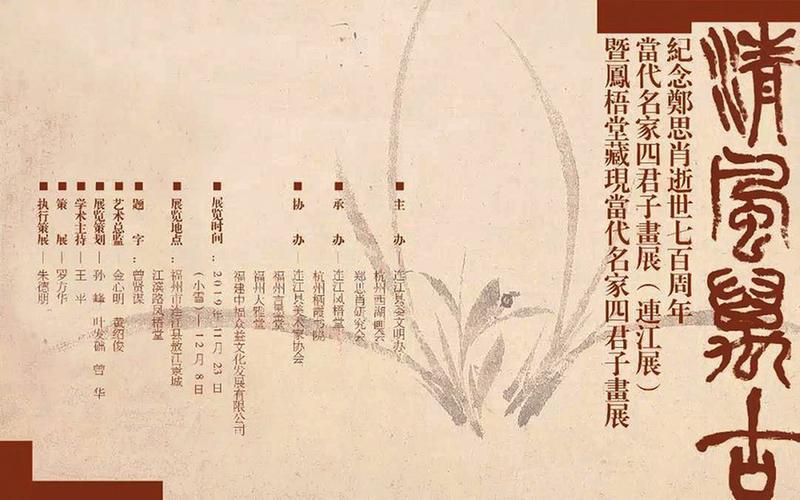 清風萬古
紀念鄭思肖逝世七百周年
當代名家四君子畫展（連江展）
暨鳳梧堂藏現當代名家四君子畫展
■主 办—连江县委文明办
杭州西湖画会
郑思肖研究会
■承 办—连江凤梧堂
杭州栖霞书院
■协 办—连江县美术家协会
福州大雅堂
福建中福众益文化发展有限公司
■展览时间：2019年11月23日
（小雪）—12月8日
■展览地点：福州市连江县敖江豪城
江滨路凤梧堂
■题 字：曾贤谋
■艺术总监—金心明 黄绍俊
■展览策划—孙 峰 叶发础 曾 华
■学术主持—王 平
■策 展—罗方华
■执行策展—朱德朋